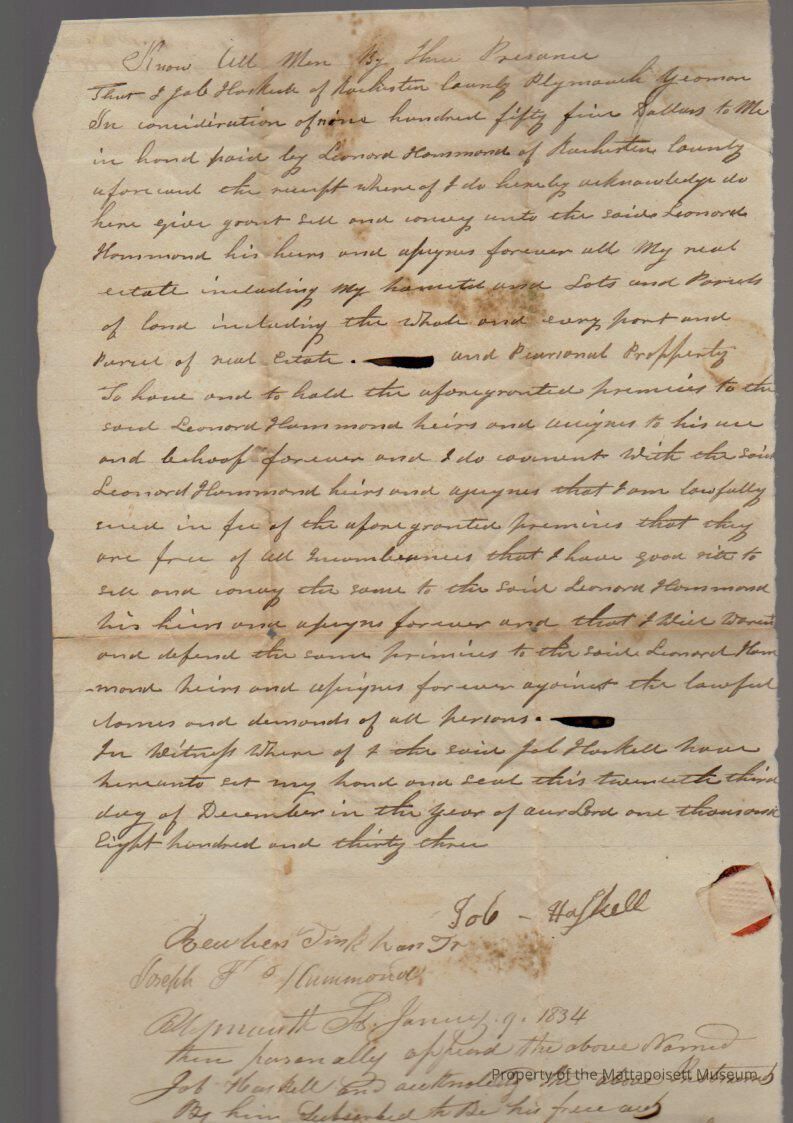 Know All Men By These Presance
That I Job Haskell of Rochester County Plymouth Yeoman
In consideration of nine hundred fifty five Dollars to Me
in hond paid by Leonord Hammond of Rochester County
aforesaid the receipt where of I do hereby acknowledge do
here give grant sell and convey unto the said Leonord
Hammond his heirs and assignes forever all My real
estate including My homested and Lots and Parcels
of land including the whole and every part and
Parcel of real Estate. and Pearsonal Propperty
To have and to hold the aforegranted premises to the
said Leonord Hammond heirs and assignes to his use
and behoof forever and I do covenent With the said
Leonord Hammond heirs and assignes that I am lawfully
seied in fee of the afore granted premises that they
are free of all Incombrances that I have good rite to
sell and convay the same to the said Leonord Hammond
his heirs and assignes forever and that I Will Warent
and defend the same primices to the said Leonord Ham
-mond heirs and assignes for ever against the lawful
clames and demands of all persons.
In Witness Where of I the said Job Haskell have
hereunto set my hand and seal this twenteth third
day of December in the year of our Lord one thousand
Eight hundred and thirty three
Job - Haskell
Reuben Tinkham Jr
Joseph Hammond
Plymouth Ss. January. 9. 1834
then parsenally appeard the above Named
Job Haskell and acknoledg the above
By him Subscribed to Be his free act
Property of the Mattapoisett Museum